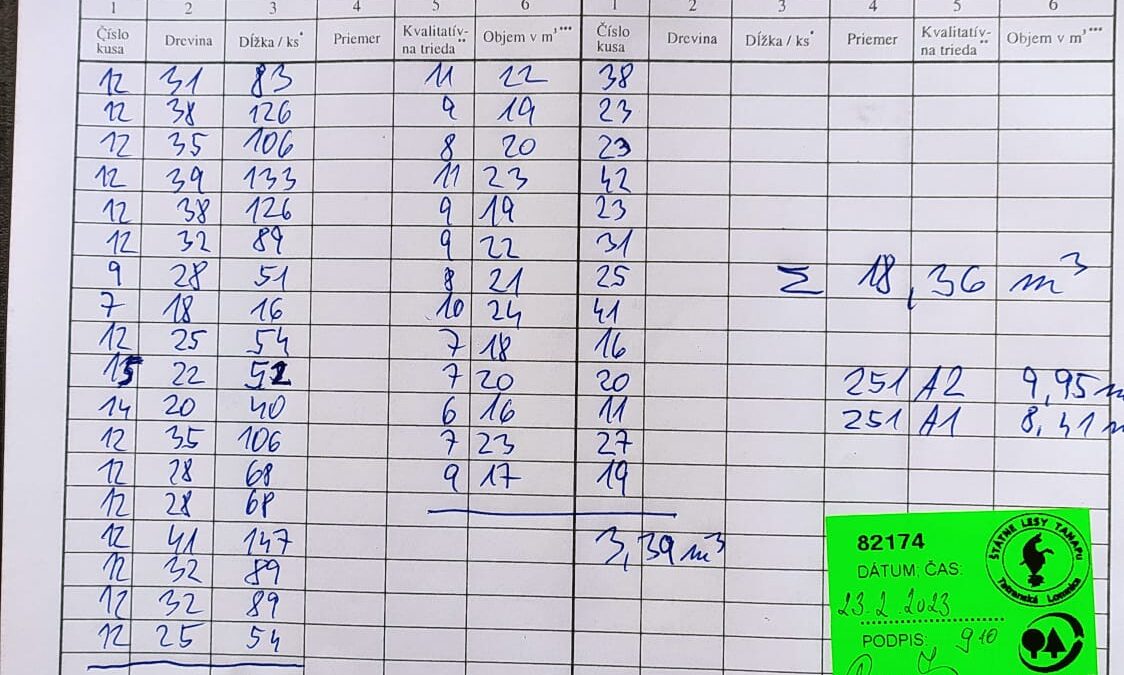 1 2 3 4 5 6 1 2 3 4 5 6
Číslo kusa Drevina Dĺžka / ks* Priemer Kvalitatív- na trieda** Objem v m³*** Číslo kusa Drevina Dĺžka / ks* Priemer Kvalitatív- na trieda** Objem v m³***
12 31 83 11 22 38
12 38 126 9 19 23
12 35 106 8 20 23
12 39 133 11 23 42
12 38 126 9 19 23
12 32 89 9 22 31
9 28 51 8 21 25 Σ 18,36 m³
7 18 16 10 24 41
12 25 54 7 18 16
15 22 52 7 20 20 251 A2 9,95 m
14 20 40 6 16 11 251 A1 8,41 m
12 35 106 7 23 27
12 28 68 9 17 19
12 28 68
12 41 147 3,39 m³
12 32 89
12 32 89
12 25 54
82174
DÁTUM, ČAS:
23.2.2023
PODPIS: 910
ŠTÁTNE LESY TANAPu
Tatranská Lomnica